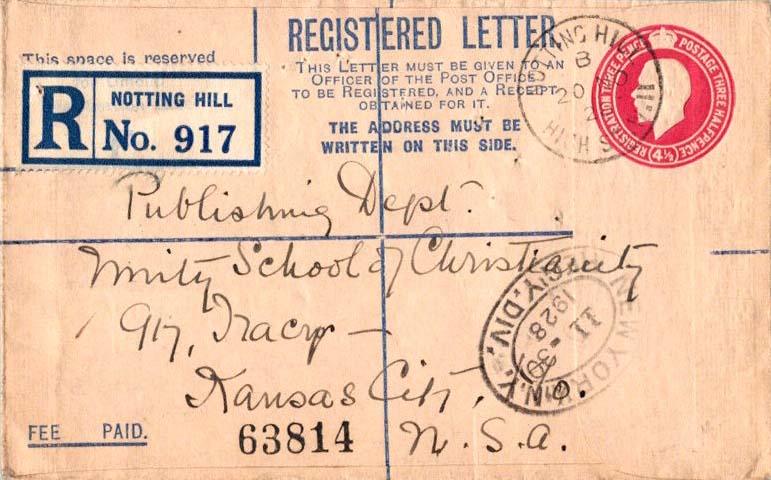 REGISTERED LETTER
THIS LETTER MUST BE GIVEN TO AN
OFFICER OF THE POST OFFICE
TO BE REGISTERED, AND A RECEIPT
OBTAINED FOR IT.
THE ADDRESS MUST BE
WRITTEN ON THIS SIDE.
This space is reserved
R
NOTTING HILL
No. 917
REGISTRATION THREE PENCE POSTAGE THREE HALFPENCE
4½
NOTTING HILL
B
20
HIGH
Publishing Dept.
Unity School of Christianity
917, Tracy —
Kansas City,
U.S.A.
NEW YORK, N.Y.
11
1928
DIV.
FEE PAID.
63814